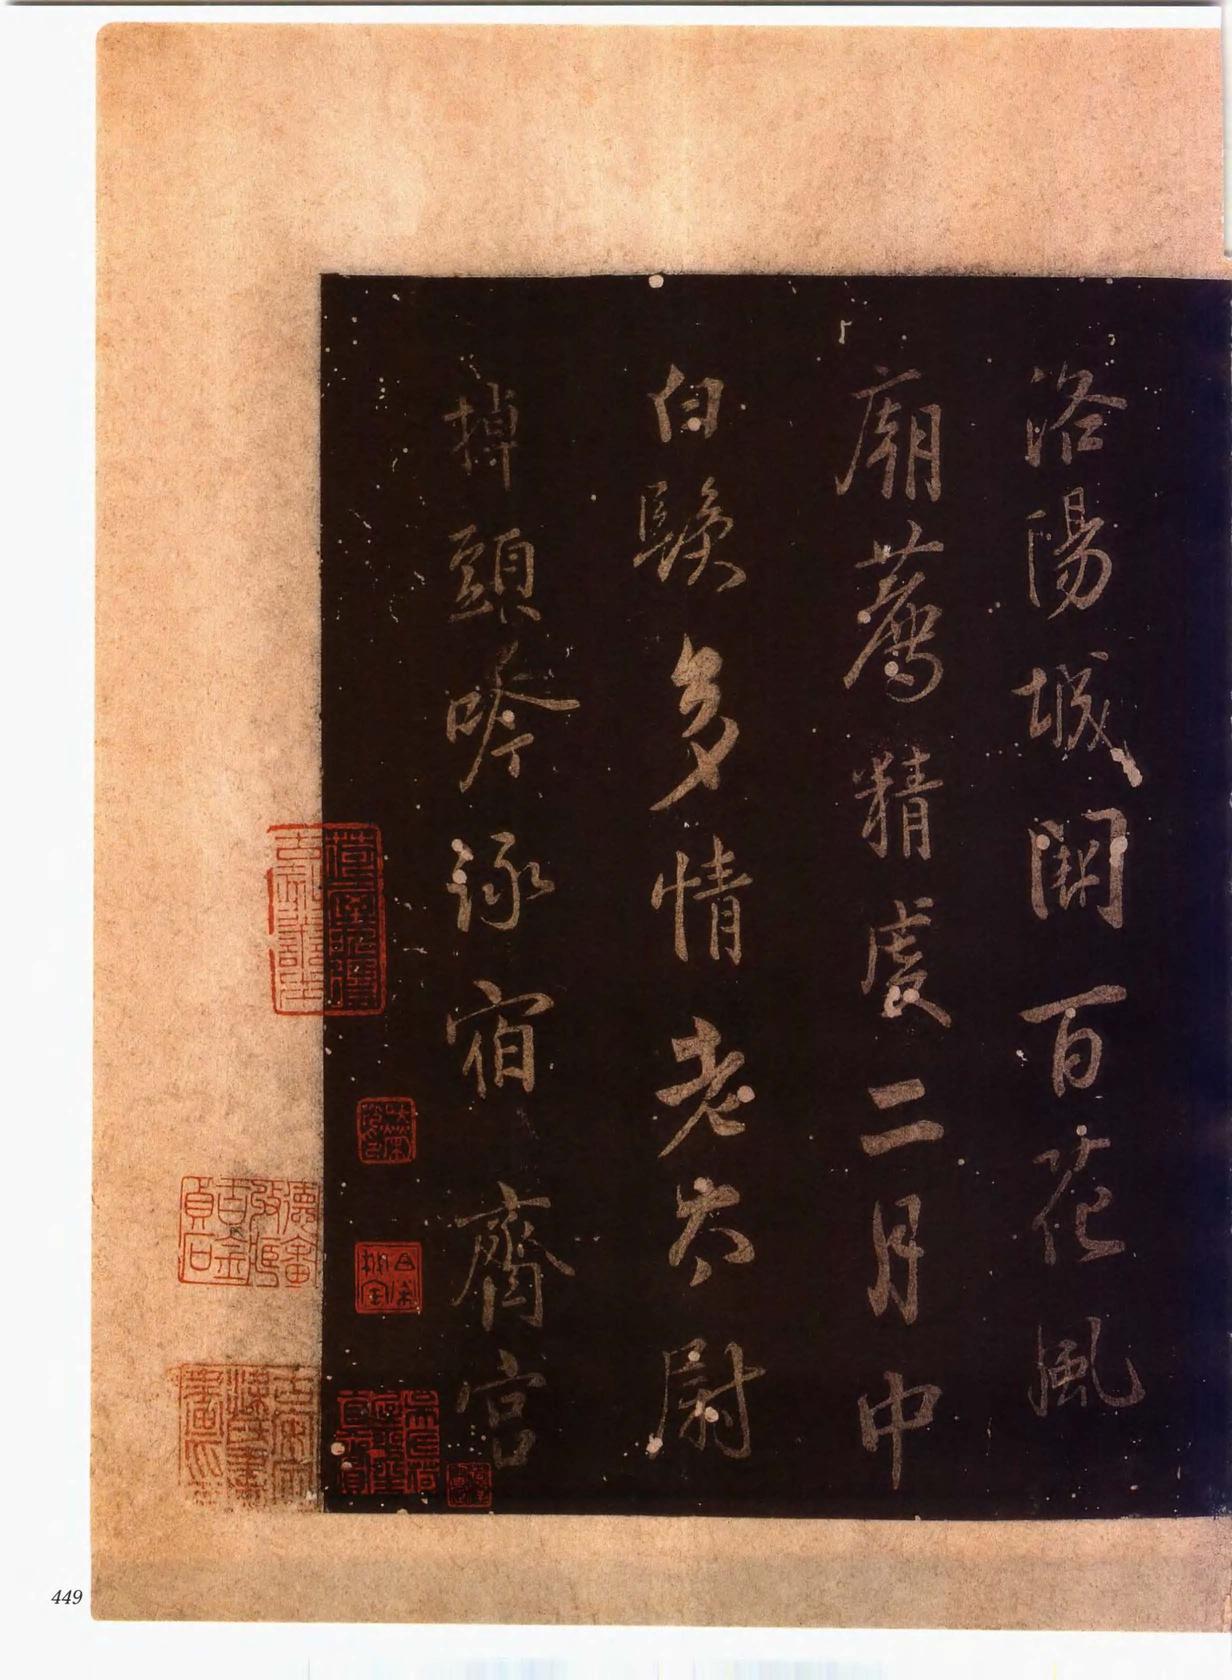 洛陽城闕百花風
廟薦精虔二月中
白鬚多情老太尉
掉頭吟詠宿齋宮
449